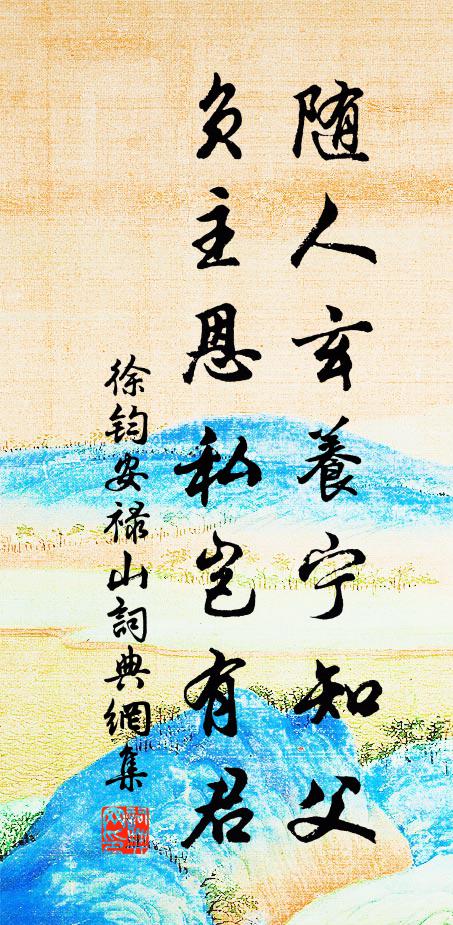 随人玄養宁知父
负主恩私岂有君
徐钧安禄山詞典網集